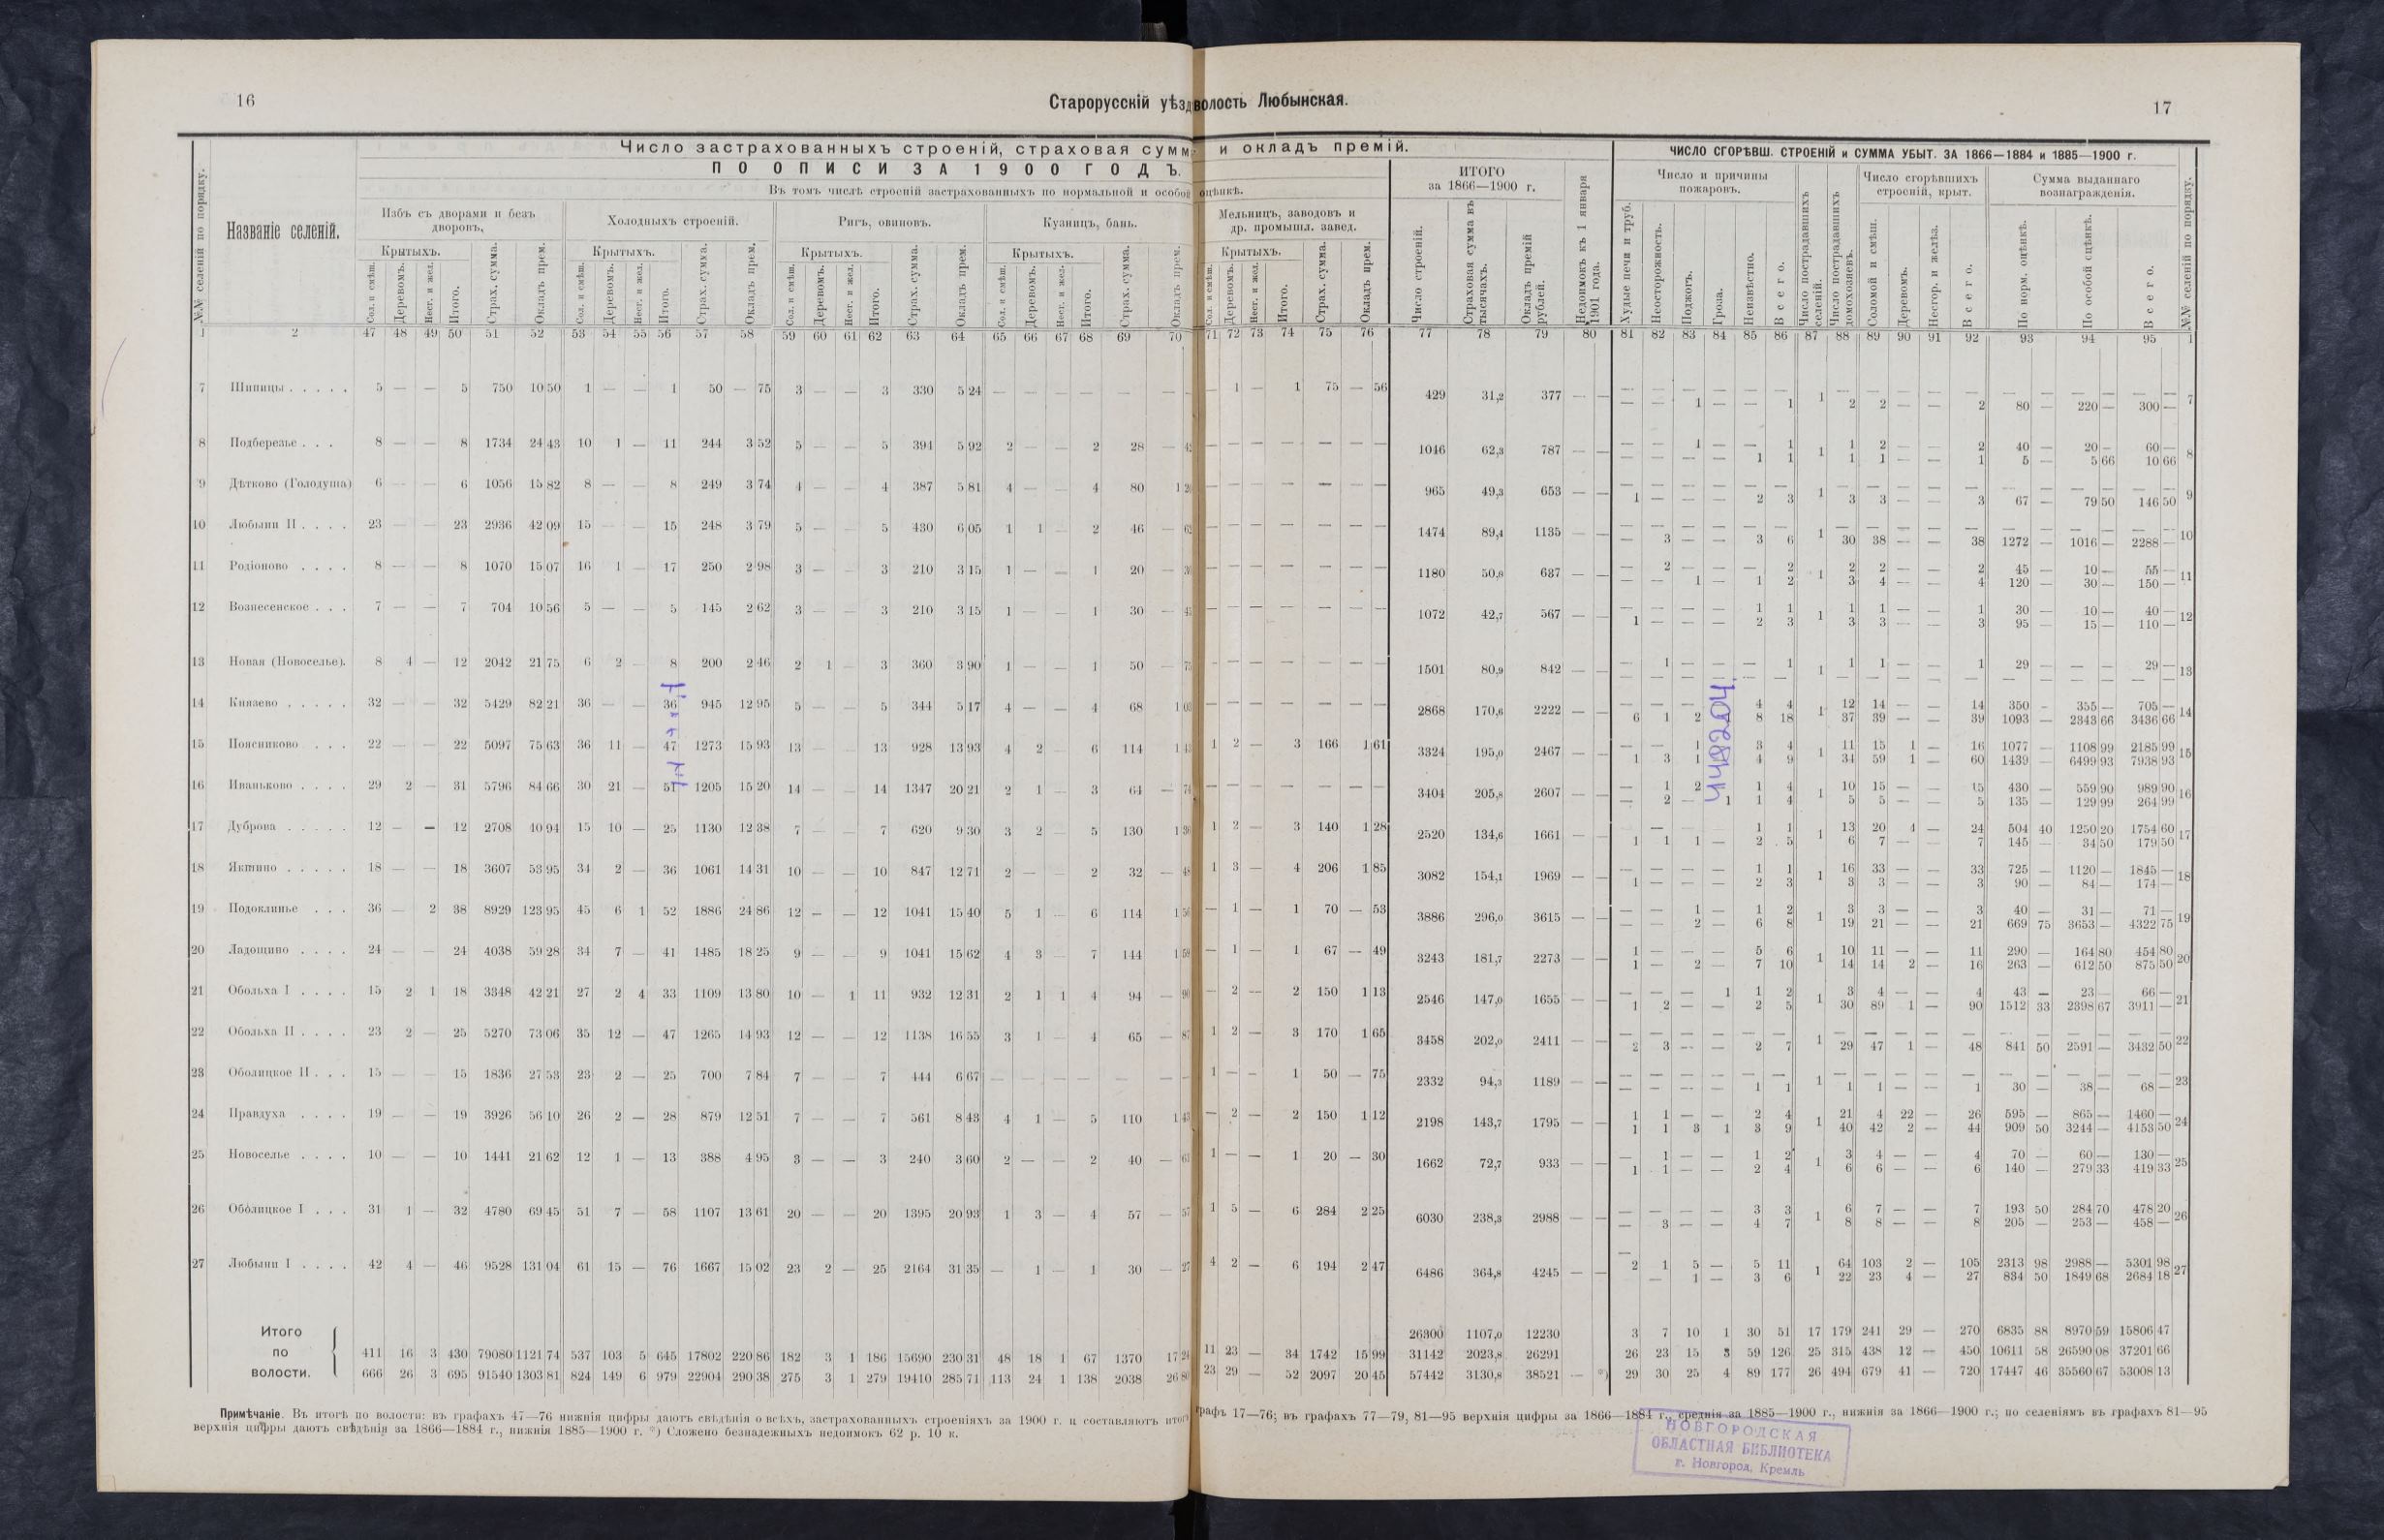 16
Старорусскій уѣзд волость Любынская.
17
Число застрахованныхъ строеній, страховая сумм и окладъ премій.
ПО ОПИСИ ЗА 1900 ГОДЪ.
Въ томъ числѣ строеній застрахованныхъ по нормальной и особой оцѣнкѣ.
ИТОГО за 1866—1900 г.
ЧИСЛО СГОРѢВШ. СТРОЕНІЙ и СУММА УБЫТ. ЗА 1866—1884 и 1885—1900 г.
№№ селеній по порядку.
Названіе селеній.
Избъ съ дворами и безъ дворовъ,
Холодныхъ строеній.
Ригъ, овиновъ.
Кузницъ, бань.
Мельницъ, заводовъ и др. промышл. завед.
Число и причины пожаровъ.
Число сгорѣвшихъ строеній, крыт.
Сумма выданнаго вознагражденія.
Крытыхъ. Крытыхъ. Крытыхъ. Крытыхъ. Крытыхъ.
Сол. и смѣш. Деревомъ. Несг. и жел. Итого. Страх. сумма. Окладъ прем.
Сол. и смѣш. Деревомъ. Несг. и жел. Итого. Страх. сумма. Окладъ прем.
Сол. и смѣш. Деревомъ. Несг. и жел. Итого. Страх. сумма. Окладъ прем.
Сол. и смѣш. Деревомъ. Несг. и жел. Итого. Страх. сумма. Окладъ прем.
Сол. и смѣш. Деревомъ. Несг. и жел. Итого. Страх. сумма. Окладъ прем.
Число строеній. Страховая сумма въ тысячахъ. Окладъ премій рублей. Недоимокъ къ 1 января 1901 года.
Худые печи и труб. Неосторожность. Поджогъ. Гроза. Неизвѣстно. Всего.
Число пострадавшихъ селеній. Число пострадавшихъ домохозяевъ. Соломой и смѣш. Деревомъ. Несгор. и желѣз. Всего.
По норм. оцѣнкѣ. По особой оцѣнкѣ. Всего. №№ селеній по порядку.
1 2 47 48 49 50 51 52 53 54 55 56 57 58 59 60 61 62 63 64 65 66 67 68 69 70 71 72 73 74 75 76 77 78 79 80 81 82 83 84 85 86 87 88 89 90 91 92 93 94 95 1
7 Шипицы . . . . . 5 — — 5 750 10 50 1 — — 1 50 — 75 3 — — 3 330 5 24 — — — — — — — 1 — 1 75 — 56 429 31,2 377 — — — — — — — — 1 — — — — — — — — 7
— — 1 — — 1 2 2 — — 2 80 — 220 — 300 —
8 Подберезье . . . 8 — — 8 1734 24 43 10 1 — 11 244 3 52 5 — — 5 394 5 92 2 — — 2 28 — — — — — — — 1046 62,3 787 — — — — 1 — — 1 1 1 2 — — 2 40 — 20 — 60 — 8
— — — — 1 1 1 1 — — 1 5 — 5 66 10 66
9 Дѣтково (Голодуша) 6 — — 6 1056 15 82 8 — — 8 249 3 74 4 — — 4 387 5 81 4 — — 4 80 1 — — — — — — 965 49,3 653 — — — — — — — — 1 — — — — — — — — 9
1 — — — 2 3 3 3 — — 3 67 — 79 50 146 50
10 Любыни II . . . . 23 — — 23 2936 42 09 15 — — 15 248 3 79 5 — — 5 430 6 05 1 1 — 2 46 — — — — — — — 1474 89,4 1135 — — — — — — — — 1 — — — — — — — — 10
— 3 — — 3 6 30 38 — — 38 1272 — 1016 — 2288 —
11 Родіоново . . . . 8 — — 8 1070 15 07 16 1 — 17 250 2 98 3 — — 3 210 3 15 1 — — 1 20 — — — — — — — 1180 50,8 687 — — — 2 — — — 2 1 2 2 — — 2 45 — 10 — 55 — 11
— — 1 — 1 2 3 4 — — 4 120 — 30 — 150 —
12 Вознесенское . . . 7 — — 7 704 10 56 5 — — 5 145 2 62 3 — — 3 210 3 15 1 — — 1 30 — — — — — — — 1072 42,7 567 — — — — — — 1 1 1 1 1 — — 1 30 — 10 — 40 — 12
1 — — — 2 3 3 3 — — 3 95 — 15 — 110 —
13 Новая (Новоселье). 8 4 — 12 2042 21 75 6 2 — 8 200 2 46 2 1 — 3 360 3 90 1 — — 1 50 — — — — — — — 1501 80,9 842 — — — 1 — — — 1 1 1 1 — — 1 29 — — — 29 — 13
— — — — — — — — — — — — — — — — —
14 Князево . . . . . 32 — — 32 5429 82 21 36 — — 36 945 12 95 5 — — 5 344 5 17 4 — — 4 68 1 — — — — — — 2868 170,6 2222 — — 4 4 1 12 14 — — 14 350 — 355 — 705 — 14
6 1 2 8 18 37 39 — — 39 1093 — 2343 66 3436 66
15 Поясниково . . . 22 — — 22 5097 75 63 36 11 — 47 1273 15 93 13 — — 13 928 13 93 4 2 — 6 114 1 1 2 — 3 166 1 61 3324 195,0 2467 — — — — 1 3 4 1 11 15 1 — 16 1077 — 1108 99 2185 99 15
1 3 1 4 9 34 59 1 — 60 1439 — 6499 93 7938 93
16 Иваньково . . . . 29 2 — 31 5796 84 66 30 21 — 51 1205 15 20 14 — — 14 1347 20 21 2 1 — 3 64 — — — — — — — 3404 205,8 2607 — — — 1 2 1 4 1 10 15 — — 15 430 — 559 90 989 90 16
— 2 — 1 1 4 5 5 — — 5 135 — 129 99 264 99
17 Дуброва . . . . . 12 — — 12 2708 40 94 15 10 — 25 1130 12 38 7 — — 7 620 9 30 3 2 — 5 130 1 36 1 2 — 3 140 1 28 2520 134,6 1661 — — — — 1 1 1 13 20 4 — 24 504 40 1250 20 1754 60 17
1 1 1 — 2 5 6 7 — — 7 145 — 34 50 179 50
18 Якшино . . . . . 18 — — 18 3607 53 95 34 2 — 36 1061 14 31 10 — — 10 847 12 71 2 — — 2 32 — 48 1 3 — 4 206 1 85 3082 154,1 1969 — — — — — — 1 1 1 16 33 — — 33 725 — 1120 — 1845 — 18
1 — — — 2 3 3 3 — — 3 90 — 84 — 174 —
19 Подоклинье . . . 36 — 2 38 8929 123 95 45 6 1 52 1886 24 86 12 — — 12 1041 15 40 5 1 — 6 114 1 — 1 — 1 70 — 53 3886 296,0 3615 — — — — 1 — 1 2 1 3 3 — — 3 40 — 31 — 71 — 19
— — 2 — 6 8 19 21 — — 21 669 75 3653 — 4322 75
20 Ладощино . . . . 24 — — 24 4038 59 28 34 7 — 41 1485 18 25 9 — — 9 1041 15 62 4 3 — 7 144 1 59 — 1 — 1 67 — 49 3243 181,7 2273 — — 1 — — — 5 6 1 10 11 — — 11 290 — 164 80 454 80 20
1 — 2 — 7 10 14 14 2 — 16 263 — 612 50 875 50
21 Обольха I . . . . 15 2 1 18 3348 42 21 27 2 4 33 1109 13 80 10 — 1 11 932 12 31 2 1 1 4 94 — 90 — 2 — 2 150 1 13 2546 147,0 1655 — — — — — 1 1 2 1 3 4 — — 4 43 — 23 — 66 — 21
1 2 — — 2 5 30 89 1 — 90 1512 33 2398 67 3911 —
22 Обольха II . . . . 23 2 — 25 5270 73 06 35 12 — 47 1265 14 93 12 — — 12 1138 16 55 3 1 — 4 65 — 87 1 2 — 3 170 1 65 3458 202,0 2411 — — — — — — — — 1 — — — — — — — — 22
2 3 — — 2 7 29 47 1 — 48 841 50 2591 — 3432 50
23 Оболицкое II . . . 15 — — 15 1836 27 53 23 2 — 25 700 7 84 7 — — 7 444 6 67 — — — — — — 1 — — 1 50 — 75 2332 94,3 1189 — — — — — — — — 1 — — — — — — — — 23
— — — — 1 1 1 1 — — 1 30 — 38 — 68 —
24 Правдуха . . . . 19 — — 19 3926 56 10 26 2 — 28 879 12 51 7 — — 7 561 8 43 4 1 — 5 110 1 43 — 2 — 2 150 1 12 2198 143,7 1795 — — 1 1 — — 2 4 1 21 4 22 — 26 595 — 865 — 1460 — 24
1 1 3 1 3 9 40 42 2 — 44 909 50 3244 — 4153 50
25 Новоселье . . . . 10 — — 10 1441 21 62 12 1 — 13 388 4 95 3 — — 3 240 3 60 2 — — 2 40 — 1 — — 1 20 — 30 1662 72,7 933 — — — 1 — — 1 2 1 3 4 — — 4 70 — 60 — 130 — 25
1 1 — — 2 4 6 6 — — 6 140 — 279 33 419 33
26 Оболицкое I . . . 31 1 — 32 4780 69 45 51 7 — 58 1107 13 61 20 — — 20 1395 20 93 1 3 — 4 57 — 57 1 5 — 6 284 2 25 6030 238,3 2988 — — — — — — 3 3 1 6 7 — — 7 193 50 284 70 478 20 26
— 3 — — 4 7 8 8 — — 8 205 — 253 — 458 —
27 Любыни I . . . . 42 4 — 46 9528 131 04 61 15 — 76 1667 15 02 23 2 — 25 2164 31 35 — 1 — 1 30 — 27 4 2 — 6 194 2 47 6486 364,8 4245 — — 2 1 5 — 5 11 1 64 103 2 — 105 2313 98 2988 — 5301 98 27
— — 1 — 3 6 22 23 4 — 27 834 50 1849 68 2684 18
Итого по волости.
26300 1107,0 12230 3 7 10 1 30 51 17 179 241 29 — 270 6835 88 8970 59 15806 47
411 16 3 430 79080 1121 74 537 103 5 645 17802 220 86 182 3 1 186 15690 230 31 48 18 1 67 1370 17 11 23 — 34 1742 15 99 31142 2023,8 26291 26 23 15 3 59 126 25 315 438 12 — 450 10611 58 26590 08 37201 66
666 26 3 695 91540 1303 81 824 149 6 979 22904 290 38 275 3 1 279 19410 285 71 113 24 1 138 2038 26 23 29 — 52 2097 20 45 57442 3130,8 38521 — *) 29 30 25 4 89 177 26 494 679 41 — 720 17447 46 35560 67 53008 13
Примѣчаніе. Въ итогѣ по волости: въ графахъ 47—76 нижнія цифры даютъ свѣдѣнія о всѣхъ, застрахованныхъ строеніяхъ за 1900 г. и составляютъ итогъ графъ 17—76; въ графахъ 77—79, 81—95 верхнія цифры за 1866—1884 г., среднія за 1885—1900 г., нижнія за 1866—1900 г.; по селеніямъ въ графахъ 81—95
верхнія цифры даютъ свѣдѣнія за 1866—1884 г., нижнія 1885—1900 г. *) Сложено безнадежныхъ недоимокъ 62 р. 10 к.
4482204
НОВГОРОДСКАЯ
ОБЛАСТНАЯ БИБЛИОТЕКА
г. Новгород, Кремль